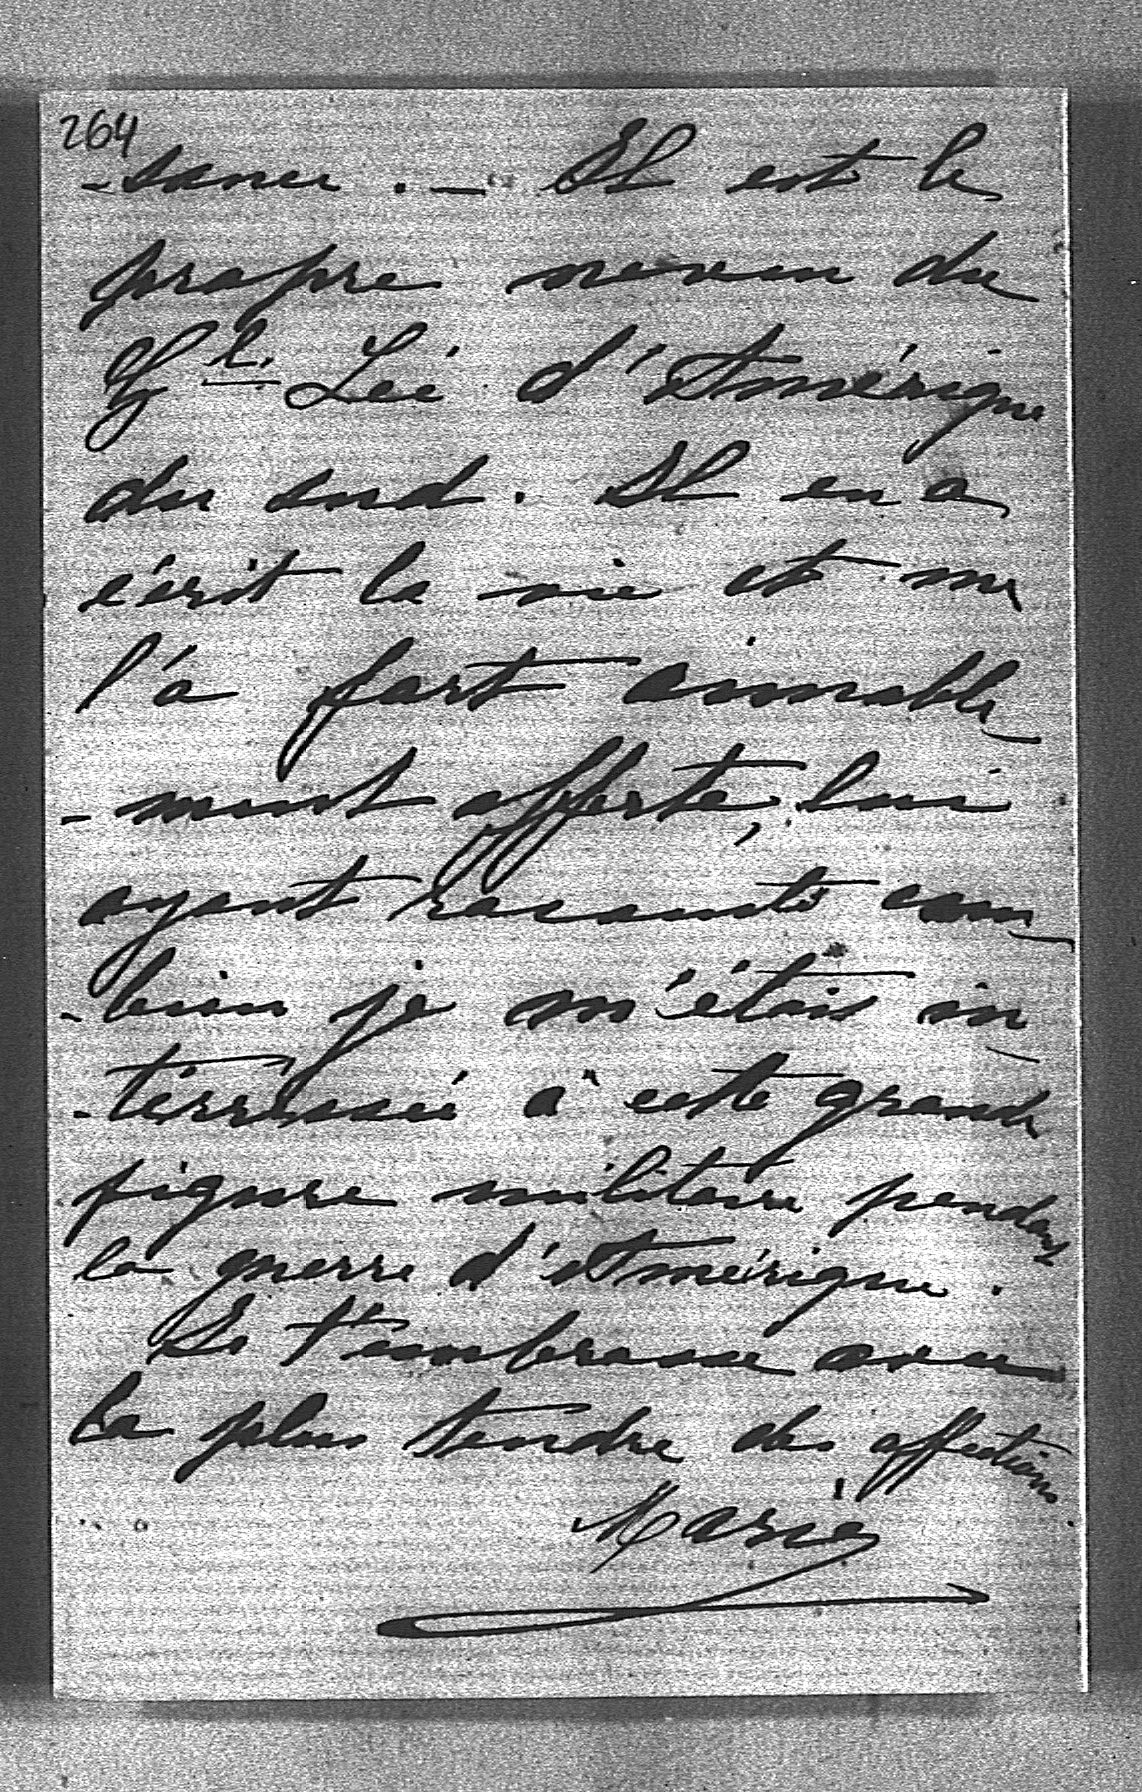 264
-sance. — Il est le
propre neveu du
Gl. Lée d'Amérique
du sud. Il en a
écrit la vie et me
l'a fort aimable
-ment offerte, lui
ayant raconté com
-bien je m'étais in
-térréssée à cette grande
figure militaire pendant
la guerre d'Amérique.
Je t'embrasse avec
la plus tendre des affections.
Marie